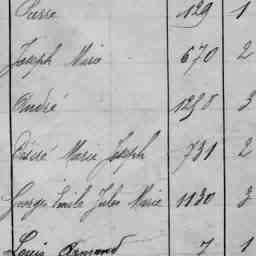 Pierre 129 1
Joseph Marie 670 2
André 1298 3
Désiré Marie Joseph 731 2
Georges Emile Jules Marie 1130 3
Louis Armand 7 1